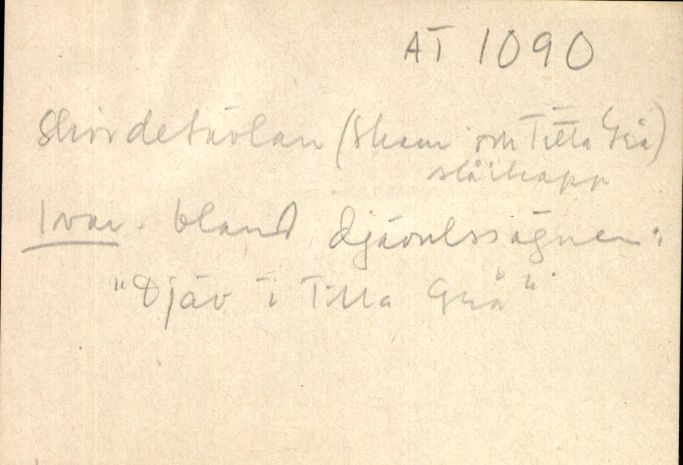 AT 1090
Skördetävlan (Skam och Titta Grå)
slå ikapp
1 var. bland djävulssägner:
"Djäv i Titta Grå"